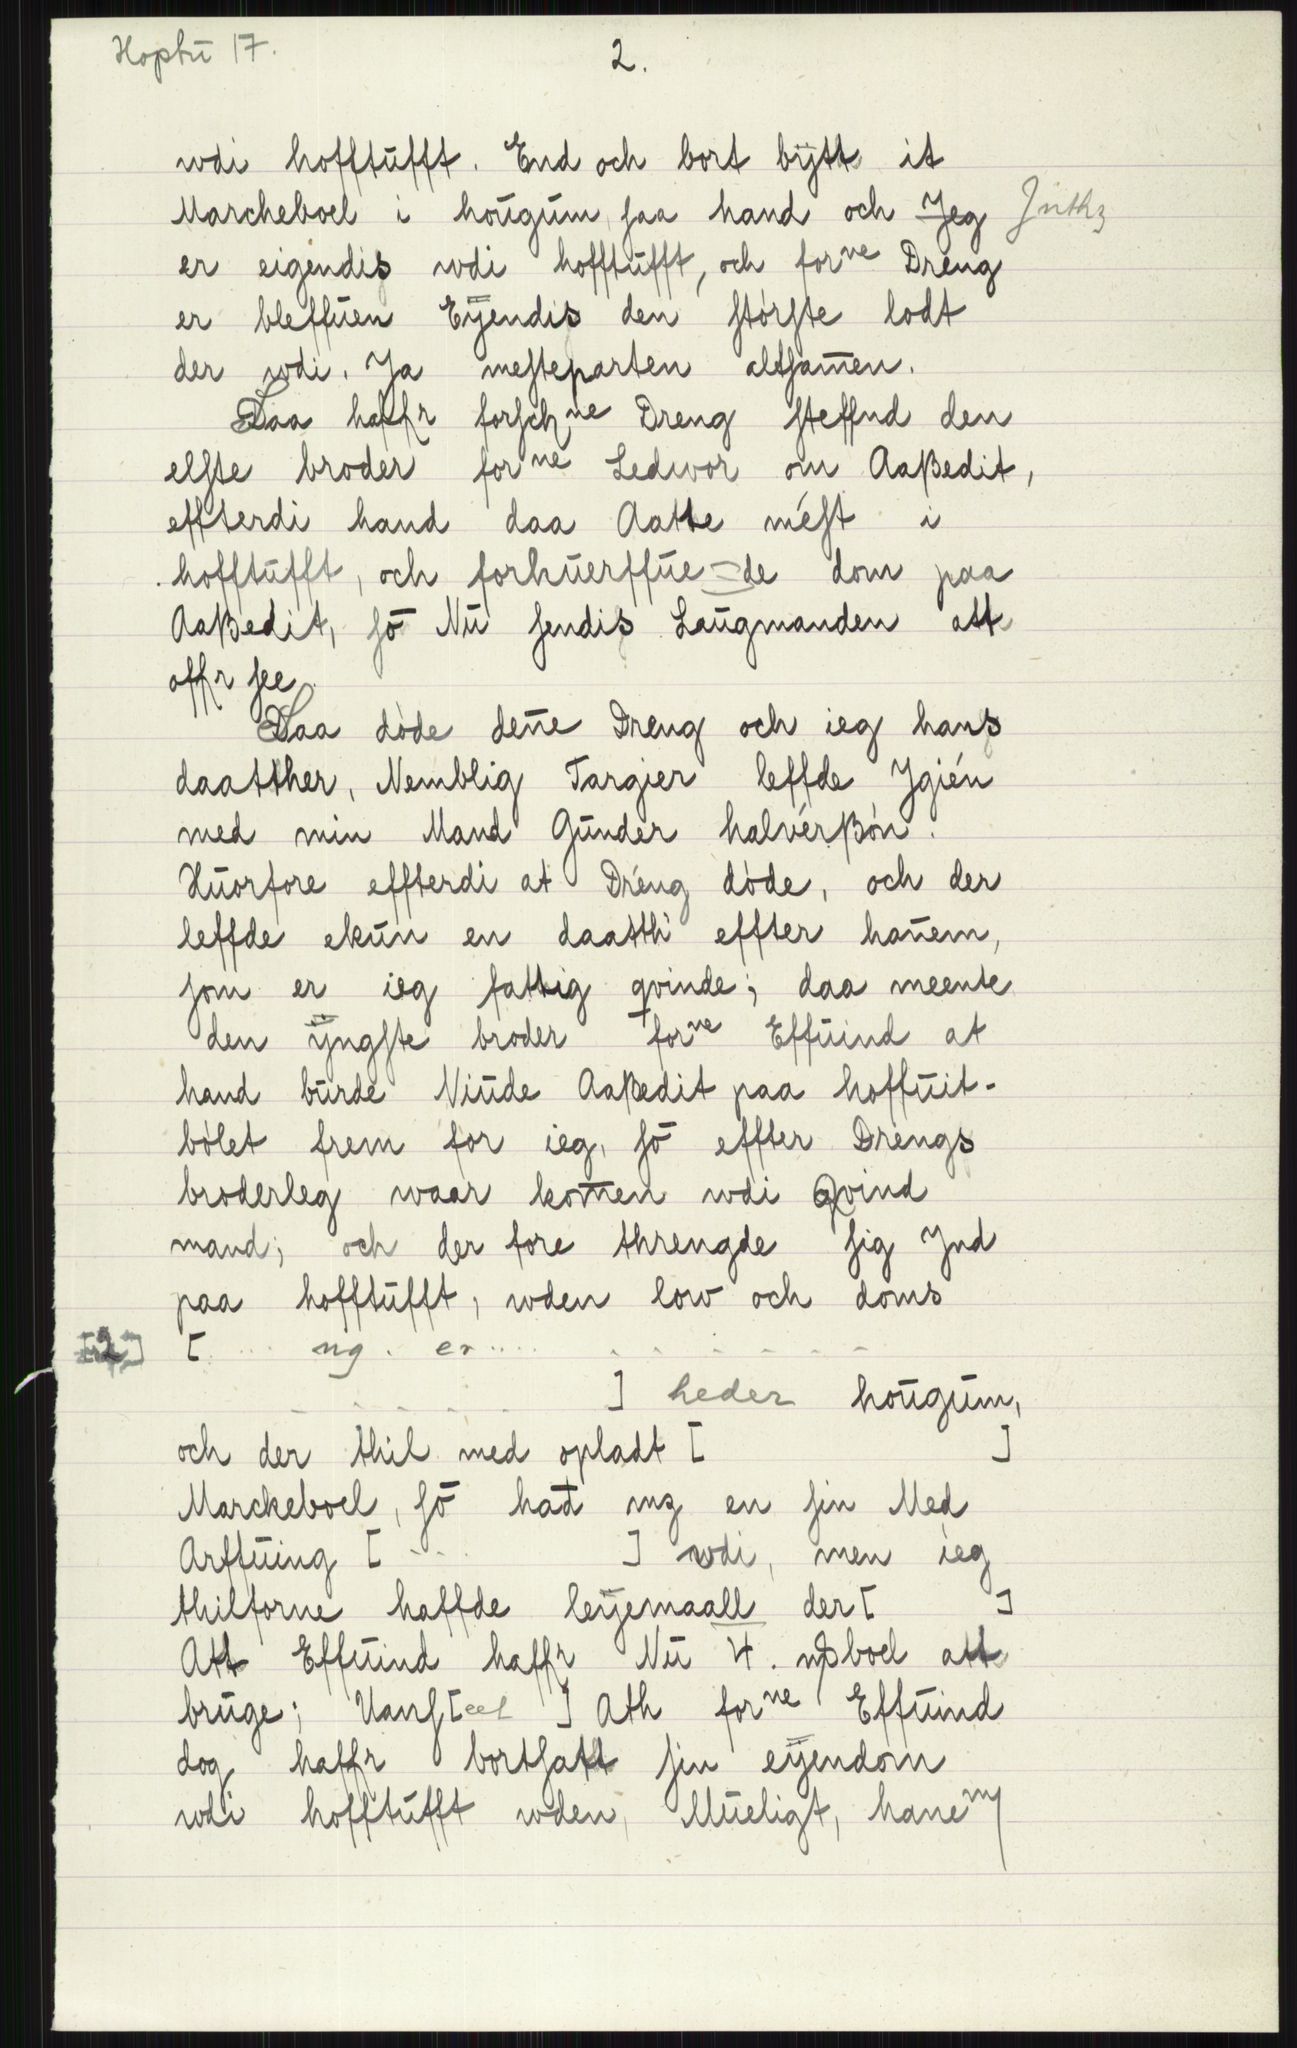 Hoptū 17.
2.
wdi hofftūfft. End och bort bÿtt it
Marcheboel i hoūgūm, saa hand och Jeg Jnthz
er eigendis wdi hofftūfft, och forne Dreng
er bleffūen Eÿendis den störste lodt
der wdi. Ja mesteparten altsam̄en.
Daa haffr forschne Dreng steffnd den
elste broder forne Ledwor om Aaßedit,
effterdi hand daa Aatte mést i
hofftūfft, och forhūerffūe=de dom paa
Aaßedit, sō Nū sendis Laūgmanden att
offr see.
Daa döde den̄e Dreng och ieg hans
daatther, Nemblig Targier leffde Jgién
med min Mand Gūnder halvérßön.
Hūorfore effterdi at Dréng döde, och der
leffde ekūn en daatth effter han̄em,
som er ieg fattig qvinde; daa meente
den ÿngste broder forne Effūind at
hand būrde Niūde Aaßedit paa hoffūit-
bölet frem for ieg, sō effter Drengs
broderleg waar kom̄en wdi Qvind
mand; och der fore threngde sig Jnd
paa hofftūfft, wden low och doms
[2] [ .... ng . er ..... . . . . . . .
. . . . . . ] heder hoūgūm,
och der thil med opladt [ ]
Marckeboel, sō had mz en sin Med
Arffūing [ ... ] wdi, men ieg
thilforne haffde leÿemaall der [ ]
Att Effūind haffr Nū 4. mßboel att
brūge; Uans[eel ] Ath forne Effūind
dog haffr bortsatt sin eÿendom
wdi hofftūfft wden, Mūeligt, hanem